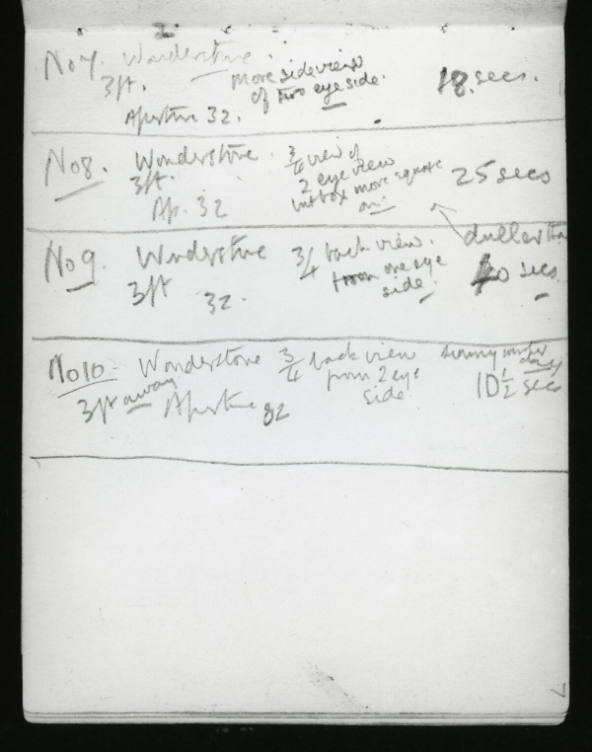 No 7. Wonderstone. More side view 18. secs.
3ft. of two eye side.
Aperture 32.
No 8. Wonderstone. 3/4 view of 25 secs
3ft. 2 eye view
Ap. 32 but box more square
on
No 9 Wonderstone 3/4 back view. duller
3ft 32. from one eye secs
side.
No 10 - Wonderstone 3/4 back view sunny winter day
3ft away Aperture 32 from 2 eye 10 1/2 secs
side